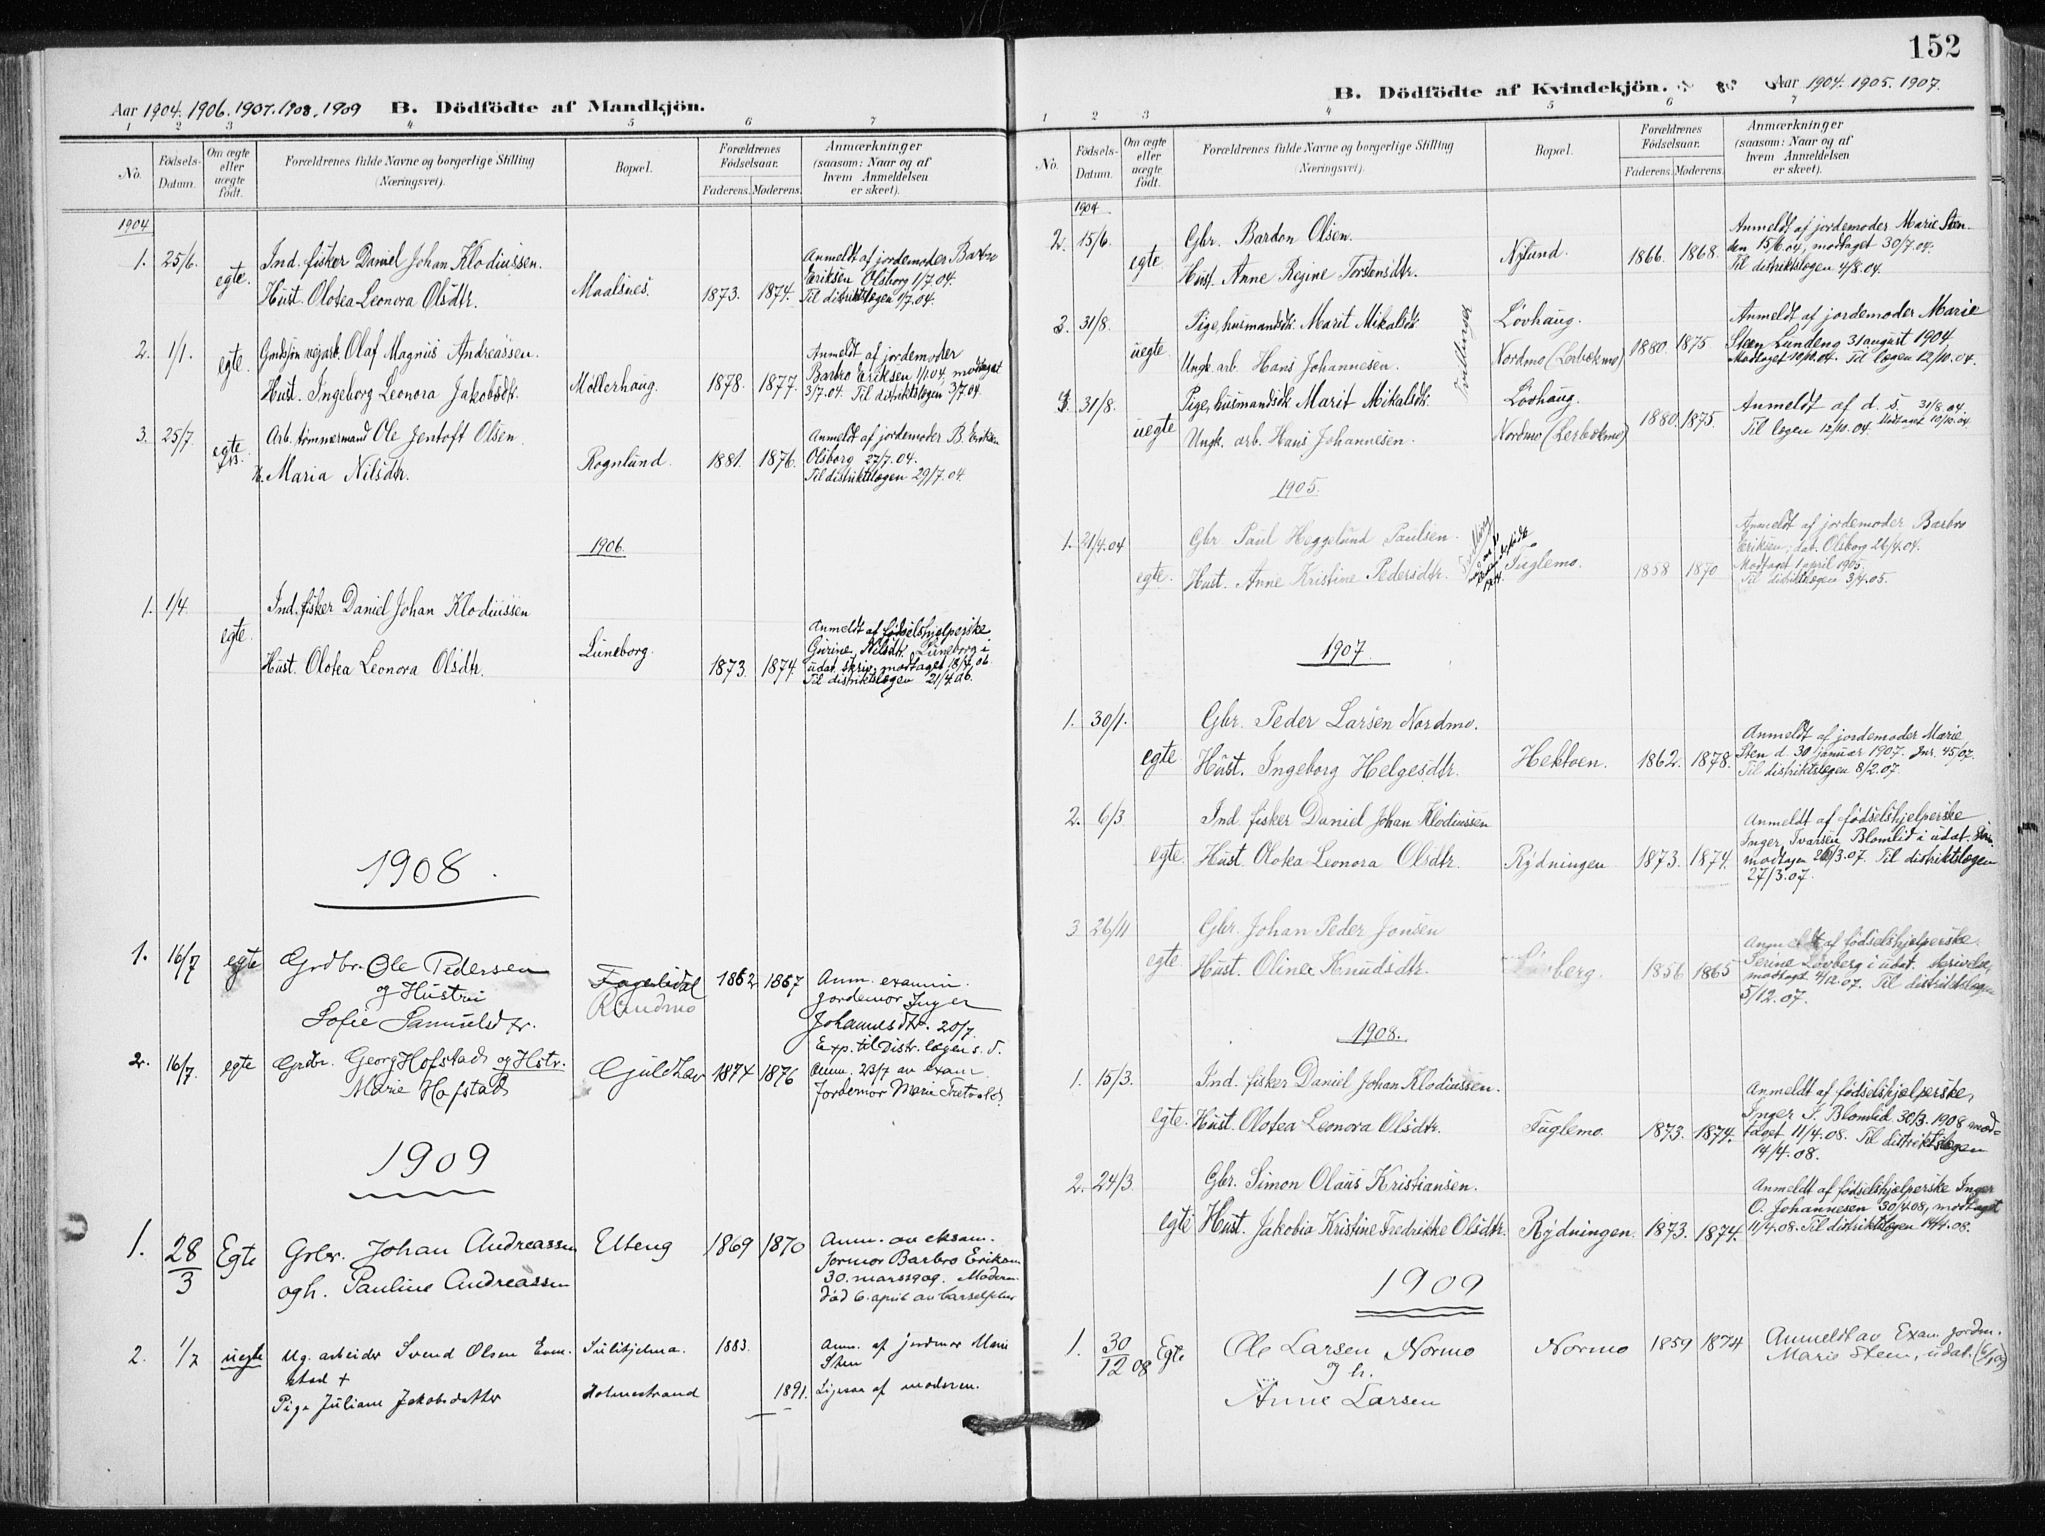 152
Aar 1904. 1906. 1907. 1908. 1909 B. Dödfödte af Mandkjön.
1 2 3 4 5 6 7
No.
Födsels-
Datum.
Om ægte
eller
uægte
födt.
Forældrenes fulde Navne og borgerlige Stilling
(Næringsvei).
Bopæl.
Forældrenes
Födselsaar.
Faderens. Moderens.
Anmærkninger
(saasom: Naar og af
hvem Anmeldelsen
er skeet).
1904
1. 25/6. egte. Ind. fisker Daniel Johan Klodiussen.
Hust. Olotea Leonora Olsdtr. Maalsnes. 1873. 1874.
Anmeldt af jordemoder Barbro
Eriksen Olsborg 1/7.04.
Til distriktslægen 1/7.04.
2. 1/1. egte. Olaf Magnus Andreassen.
Hust. Ingeborg Leonora Jakobsdtr. Möllerhaug. 1878. 1877.
Anmeldt af jordemoder
Barbro Eriksen 1/7.04, modtaget
3/7.04. Til distriktslægen 3/7.04.
3. 25/7. egte Arb. tömmermand Ole Jentoft Olsen
Maria Nilsdtr. Rognlund. 1881. 1876.
Anmeldt af jordemoder B. Eriksen
Olsborg 27/7.04.
Til distriktslægen 29/7.04.
1906.
1. 1/4 egte. Ind. fisker Daniel Johan Klodiussen
Hust. Olotea Leonora Olsdtr. Luneborg. 1873. 1874.
Anmeldt af fødselshjelperske
Gurine Nilsdtr. Luneborg i
udat. skriv. modtaget 18/4.06.
Til distriktslægen 21/4.06.
1908.
1. 16/7 egte Grdbr. Ole Pedersen
og Hustru
Sofie Samuelsdtr. Fagerlidal
Rundmo 1862 1867
Anm. examin.
jordemor Inger
Johannesdtr. 20/7.
Exp. til Distr. lægen s. d.
2. 16/7. egte Grdbr. Georg Hofstad og Hstr.
Marie Hofstad Guldhav 1874 1876
Anm. 23/7 av exam.
Jordemor Marie
1909
1. 28/3 Egte Grbr. Johan Andreassen
og h. Pauline Andreassen Uteng 1869 1870
Anm. av eksam.
Jormor Barbro Eriksen
30. mars 1909. Moderen
död 6. april av barselfeber
2. 1/7 uegte Ug. arbeider Svend Olsen Evm.
stad +
Pige Juliane Jakobsdatter
Sulitjelma. 1883.
Holmestrand 1891.
Anm. af jordmor Marie
Sten
Ligesaa af moderen.
B. Dödfödte af Kvindekjön. Aar 1904. 1905. 1907.
1 2 3 4 5 6 7
No.
Födsels-
Datum.
Om ægte
eller
uægte
födt.
Forældrenes fulde Navne og borgerlige Stilling
(Næringsvei).
Bopæl.
Forældrenes
Födselsaar.
Faderens. Moderens.
Anmærkninger
(saasom: Naar og af
hvem Anmeldelsen
er skeet).
1904
2. 15/6. egte. Gbr. Bardon Olsen.
Hust. Anne Regine Torstensdtr. Nylund. 1866. 1868.
Anmeldt af jordemoder Marie Steen
den 15/6.04, modtaget 30/7.04.
Til distriktslægen 4/8.04.
2. 31/8. uegte. Pige, husmandsdtr. Marit Mikalsdtr.
Ungk. arb. Hans Johannesen.
Løvhaug.
Nordmo (Lerbækmo) 1880. 1875
Anmeldt af jordemoder Marie
Steen Lundeng 31 august 1904.
Modtaget 10/10.04. Til lægen 12/10.04.
Tvillinger
3. 31/8. uegte Pige, husmandsdtr. Marit Mikalsdtr.
Ungk. arb. Hans Johannesen.
Løvhaug.
Nordmo (Lerbækmo) 1880. 1875.
Anmeldt af d. s. 31/8.04.
Til lægen 12/10.04. Modtaget 10/10.04
1905.
1. 21/4.04 egte. Gbr. Paul Heggelund Paulsen.
Hust. Anne Kristine Pedersdtr. Fuglemo. 1858 1870
Tvilling
Anmeldt af jordemoder Barbro
Eriksen, dat. Olsborg 26/4.04.
Modtaget 1 april 1905.
Til distriktslægen 3/4.05.
1907.
1. 30/1. egte Gbr. Peder Larsen Nordmo.
Hust. Ingeborg Helgesdtr. Hektoen. 1862. 1878.
Anmeldt af jordemoder Marie
Sten d. 30 januar 1907. Jnr. 45/07.
Til distriktslægen 8/2.07.
2. 6/3 egte. Ind. fisker Daniel Johan Klodiussen
Hust. Olotea Leonora Olsdtr. Rydningen 1873. 1874.
Anmeldt af fødselshjelperske
Inger Ivarsen Blomlid i udat. skriv.
modtagen 26/3.07. Til distriktslægen
27/3.07.
3 26/11 egte. Gbr. Johan Peder Jonsen
Hust. Oline Knudsdtr. Løvberg. 1856 1865
Anmeldt af fødselshjelperske
Serine Løvberg i udat. skrivelse,
modtagt 4/12.07. Til distriktslægen
5/12.07.
1908.
1. 15/3. egte. Ind. fisker Daniel Johan Klodiussen.
Hust. Olotea Leonora Olsdtr. Fuglemo. 1873. 1874.
Anmeldt af fødselshjælperske,
Inger I. Blomlid 30/3.1908 mod-
taget 11/4.08. Til distriktslægen
14/4.08.
2. 24/3 egte Gbr. Simon Olaus Kristiansen.
Hust. Jakobia Kristine Fredrikke Olsdtr. Rydningen. 1873. 1874.
Anmeldt af fødselshjælperske Inger
O. Johannesen 30/4.08, modtaget
11/4.08. Til distriktslægen 14/4.08.
1909
1. 30/12 08 Egte Ole Larsen Normo
og h.
Anne Larsen Normo 1859 1874
Anmeldt av Exam. jordm.
Marie Steen, udat.